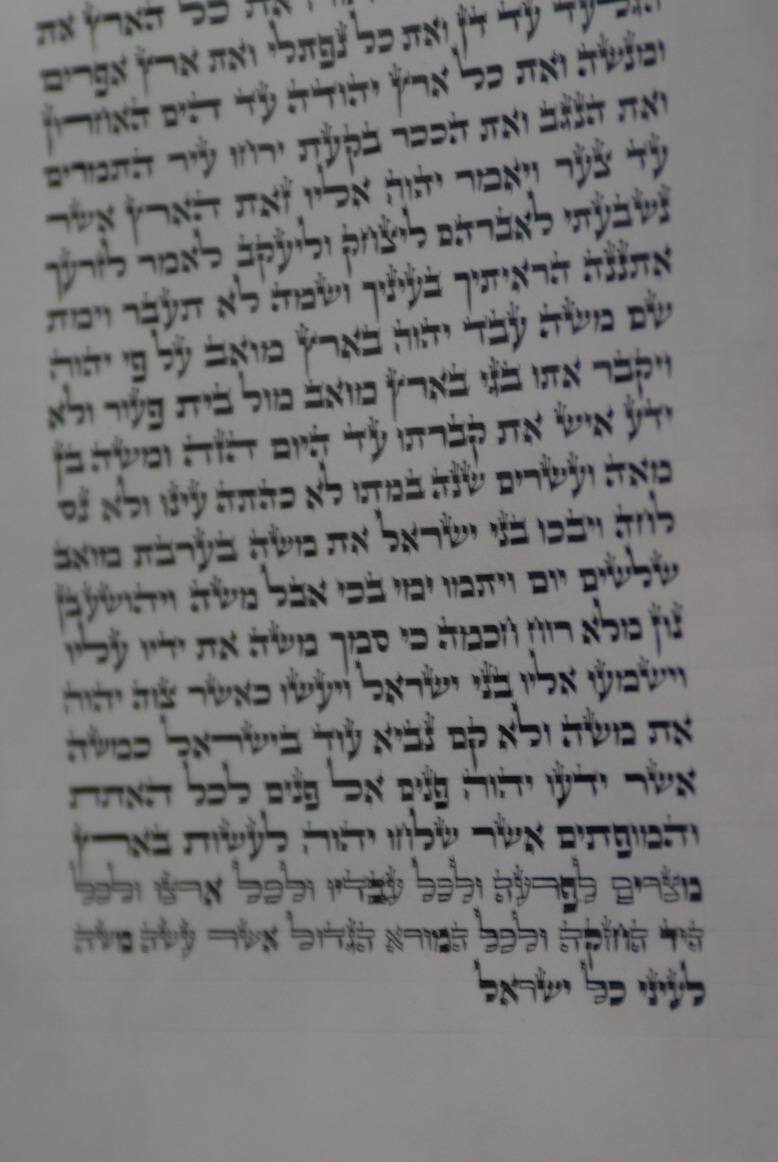 את כל הארץ את
הגלעד עד דן ואת כל נפתלי ואת ארץ אפרים
ומנשה ואת כל ארץ יהודה עד הים האחרון
ואת הנגב ואת הככר בקעת ירחו עיר התמרים
עד צער ויאמר יהוה אליו זאת הארץ אשר
נשבעתי לאברהם ליצחק וליעקב לאמר לזרעך
אתננה הראיתיך בעיניך ושמה לא תעבר וימת
שם משה עבד יהוה בארץ מואב על פי יהוה
ויקבר אתו בגי בארץ מואב מול בית פעור ולא
ידע איש את קברתו עד היום הזה ומשה בן
מאה ועשרים שנה במתו לא כהתה עינו ולא נס
לחה ויבכו בני ישראל את משה בערבת מואב
שלשים יום ויתמו ימי בכי אבל משה ויהושע בן
נון מלא רוח חכמה כי סמך משה את ידיו עליו
וישמעו אליו בני ישראל ויעשו כאשר צוה יהוה
את משה ולא קם נביא עוד בישראל כמשה
אשר ידעו יהוה פנים אל פנים לכל האתת
והמופתים אשר שלחו יהוה לעשות בארץ
מצרים לפרעה ולכל עבדיו ולכל ארצו ולכל
היד החזקה ולכל המורא הגדול אשר עשה משה
לעיני כל ישראל